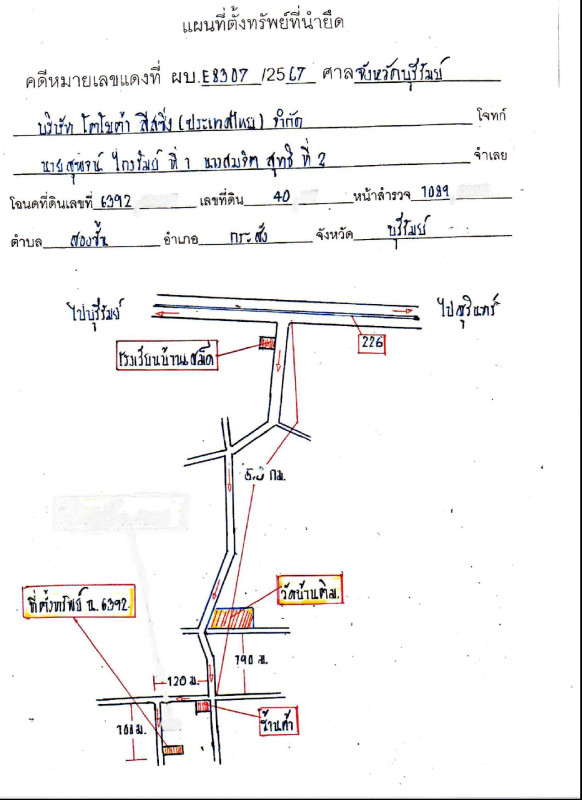 แผนที่ตั้งทรัพย์ที่นำยึด
คดีหมายเลขแดงที่ ผบ.E8307 /2567 ศาลจังหวัดบุรีรัมย์
บริษัท โตโยต้า ลีสซิ่ง (ประเทศไทย) จำกัด โจทก์
ไกรรัมย์ ที่ 1 นางสมจิต สุทธิ ที่ 2 จำเลย
โฉนดที่ดินเลขที่ 6392 เลขที่ดิน 40 หน้าสำรวจ 1089
ตำบล สองชั้น อำเภอ กระสัง จังหวัด บุรีรัมย์
ไปบุรีรัมย์
ไปสุรินทร์
226
โรงเรียนบ้านเสม็ด
กม.
ที่ตั้งทรัพย์ ฉ.6392
วัดบ้านเติม
190 ม.
120 ม.
ร้านค้า
100 ม.